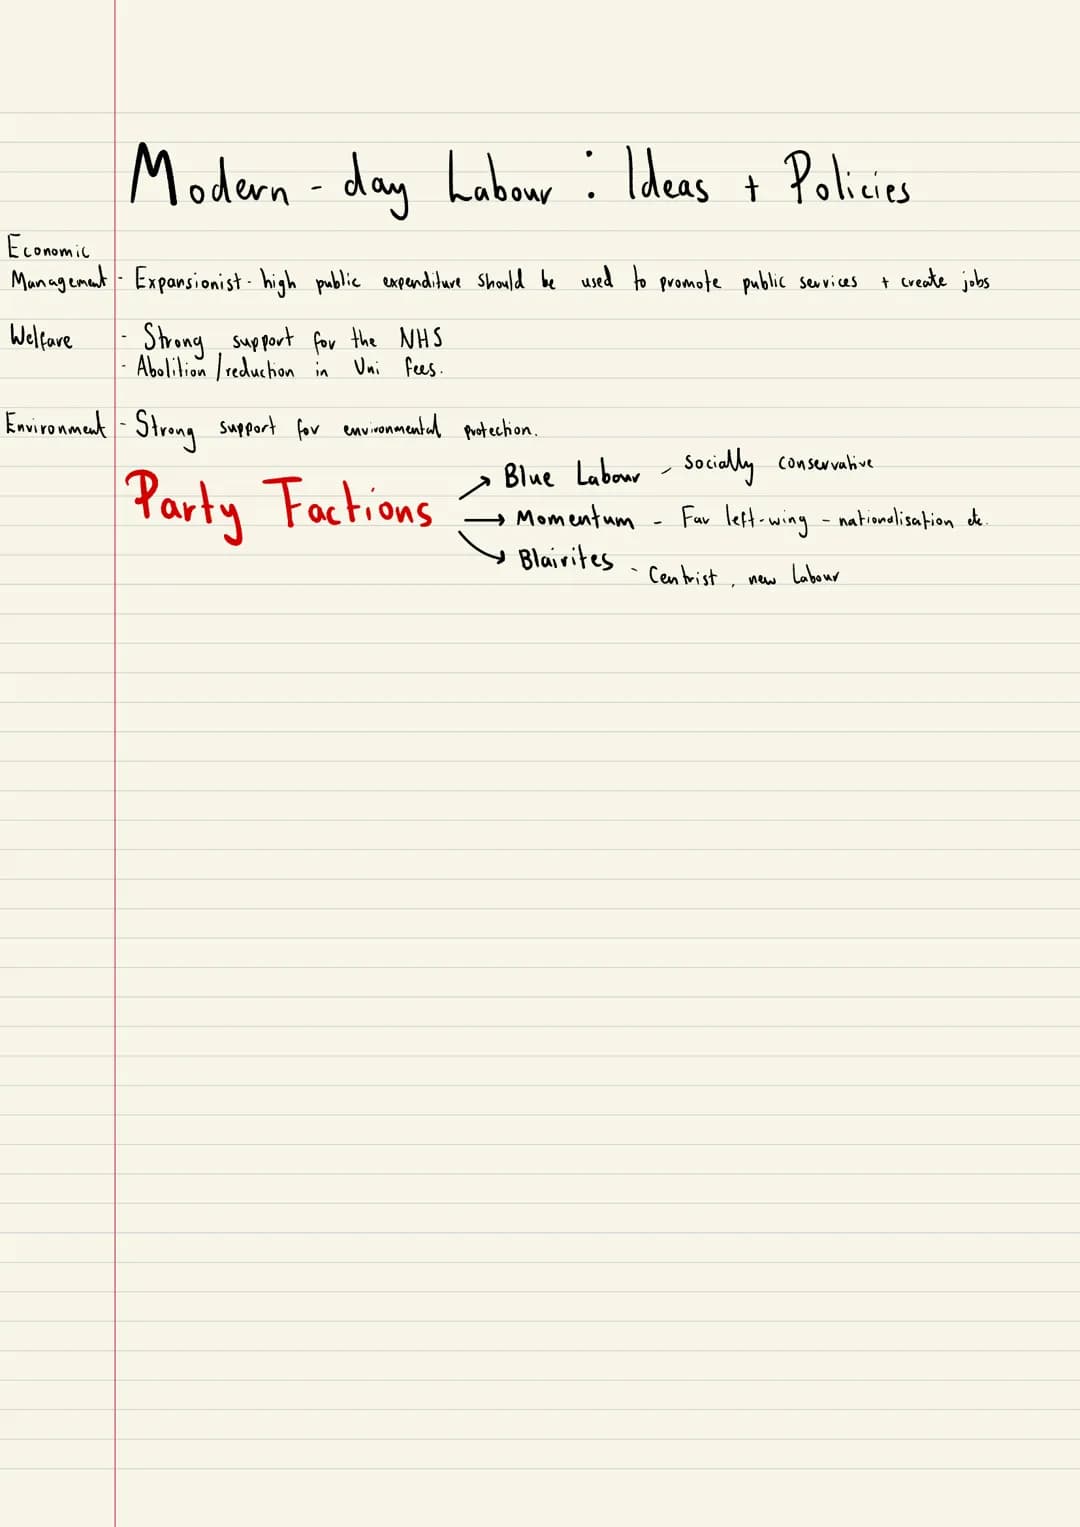 Modern-day Labour : Ideas + Policies
Economic
Management - Expansionist - high public expenditure should be used to promote public services + create jobs
Welfare - Strong support for the NHS
- Abolition / reduction in Uni fees.
Environment - Strong support for environmental protection.
Party Factions
→ Blue Labour - Socially conservative
→ Momentum - Far left-wing - nationalisation etc.
→ Blairites - Centrist, new Labour